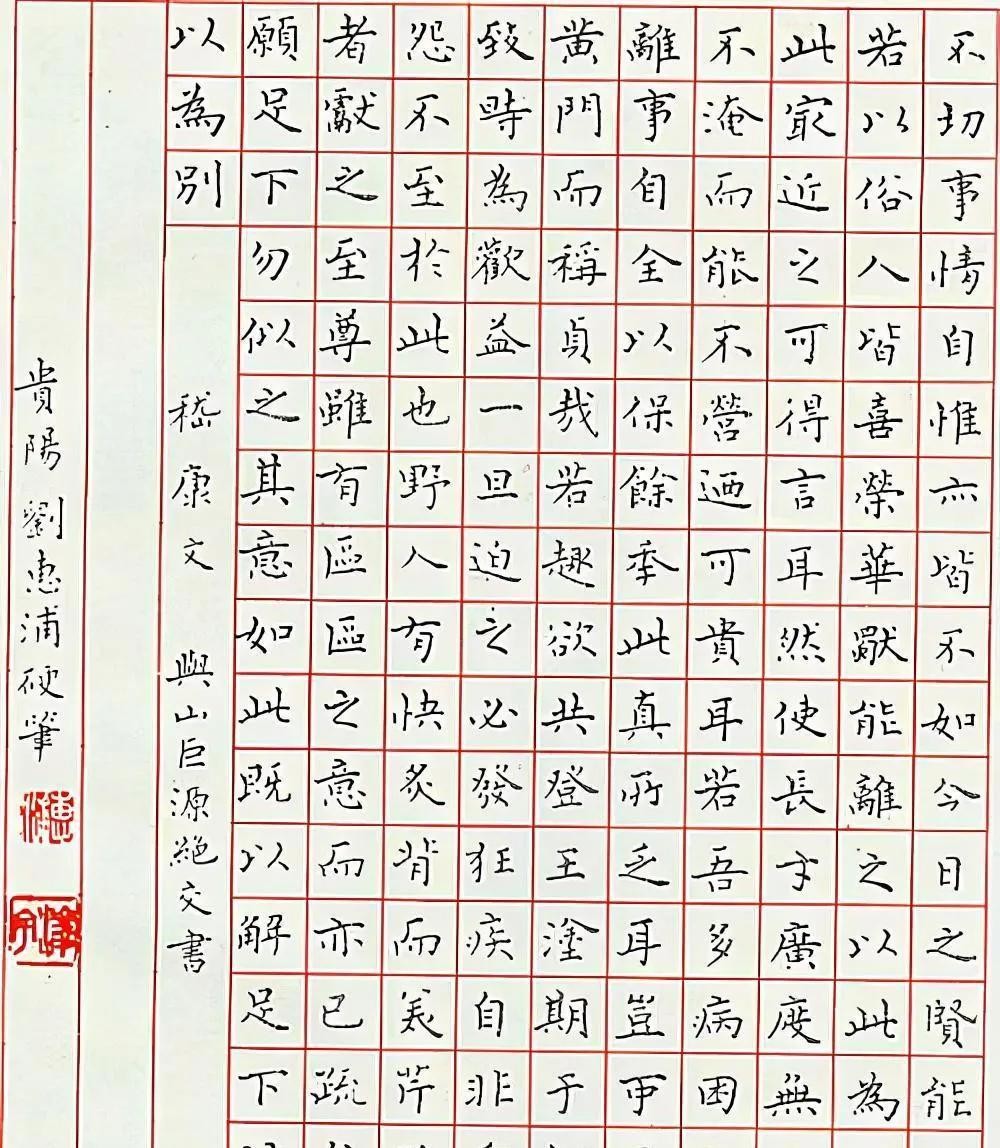 不切事情自惟亦皆不如今日之賢能
若以俗人皆喜榮華能離之以此為
此最近之可得言耳然使長才廣度無
不淹而能不營迺可貴耳若吾多病困
離事自全以保餘年此真所乏耳豈可
黃門而稱貞哉若趣欲共登王塗期于
致時為歡益一旦迫之必發狂疾自非
怨不至於此也野人有快炙背而美芹
者獻之至尊雖有區區之意而亦已疏
願足下勿似之其意如此既以解足下
以為別
嵇康文 與山巨源絕交書
貴陽劉惠浦硬筆